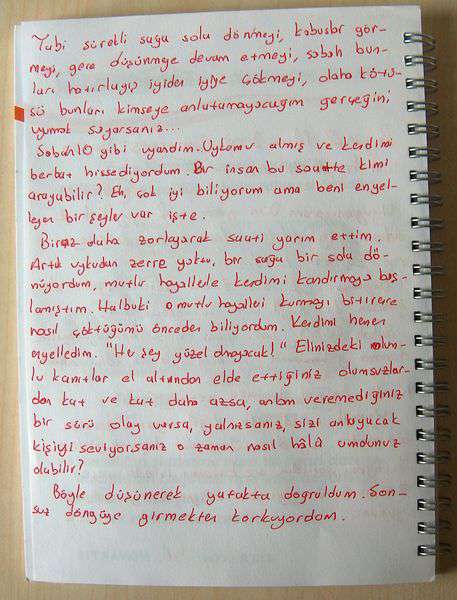 Tabi sürekli sağa sola dönmeyi, kabuslar gör-
meyi, gece düşünmeye devam etmeyi, sabah bun-
ları hatırlayıp iyiden iyiye çökmeyi, daha kötü-
sü bunları kimseye anlatamayacağım gerçeğini
uyumak sayarsanız...
Sabah 10 gibi uyandım. Uykumu almış ve kendimi
berbat hissediyordum. Bir insan bu saatte kimi
arayabilir? Eh, çok iyi biliyorum ama beni engel-
leyen bir şeyler var işte.
Biraz daha zorlayarak saati yarım ettim.
Artık uykudan zerre yoktu, bir sağa bir sola dö-
nüyordum, mutlu hayallerle kendimi kandırmaya baş-
lamıştım. Halbuki o mutlu hayalleri kurmayı bitirince
nasıl çöktüğümü önceden biliyordum. Kendimi hemen
engelledim. "Her şey güzel olmayacak!" Elinizdeki olum-
lu kanıtlar el altından elde ettiğiniz olumsuzlar-
dan kat ve kat daha azsa, anlam veremediğiniz
bir sürü olay varsa, yalnızsanız, sizi anlayacak
kişiyi seviyorsanız o zaman nasıl hâlâ umudunuz
olabilir?
Böyle düşünerek yatakta doğruldum. Son-
suz döngüye girmekten korkuyordum.